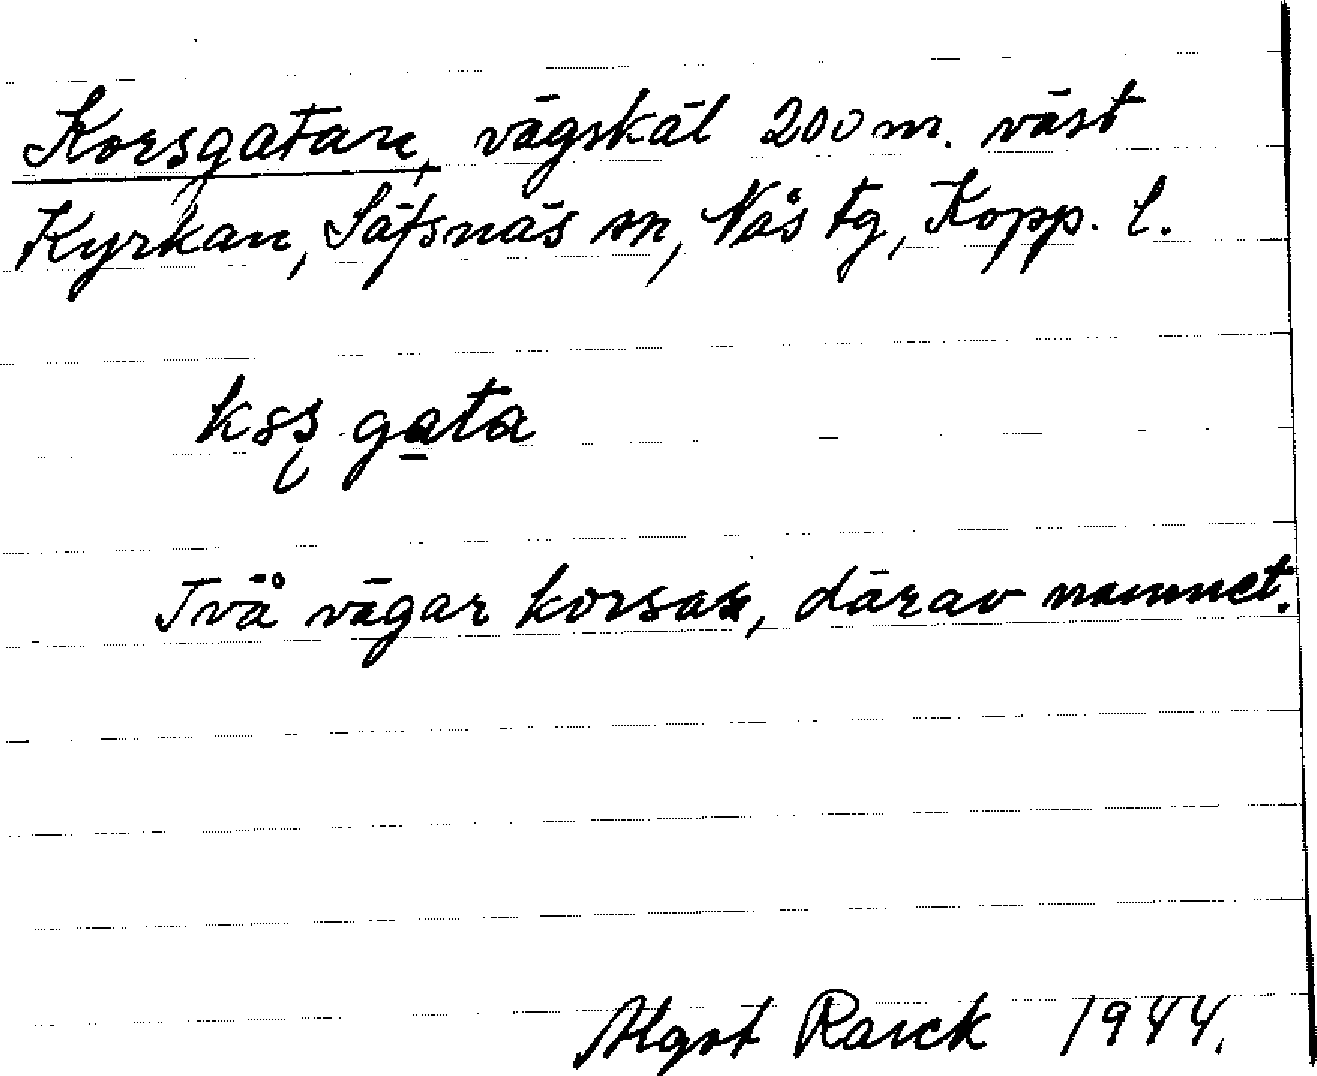 Korsgatan, vägskäl 200 m. väst
Kyrkan, Säfsnäs sn, Nås tg, Kopp. l.
gata
Två vägar korsas, därav namnet.
1944.